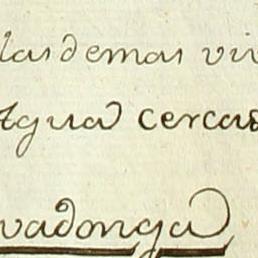 las demas viv
Agua cercas
vadonga